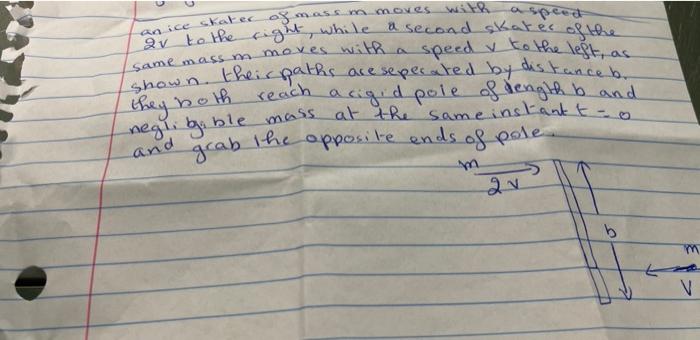 an ice skater of mass m moves with a speed
2v to the right, while a second skater of the
same mass m moves with a speed v to the left, as
shown. their paths are seperated by distance b.
they both reach a rigid pole of length b and
negligible mass at the same instant t = 0
and grab the opposite ends of pole.
m
2v
b
m
V